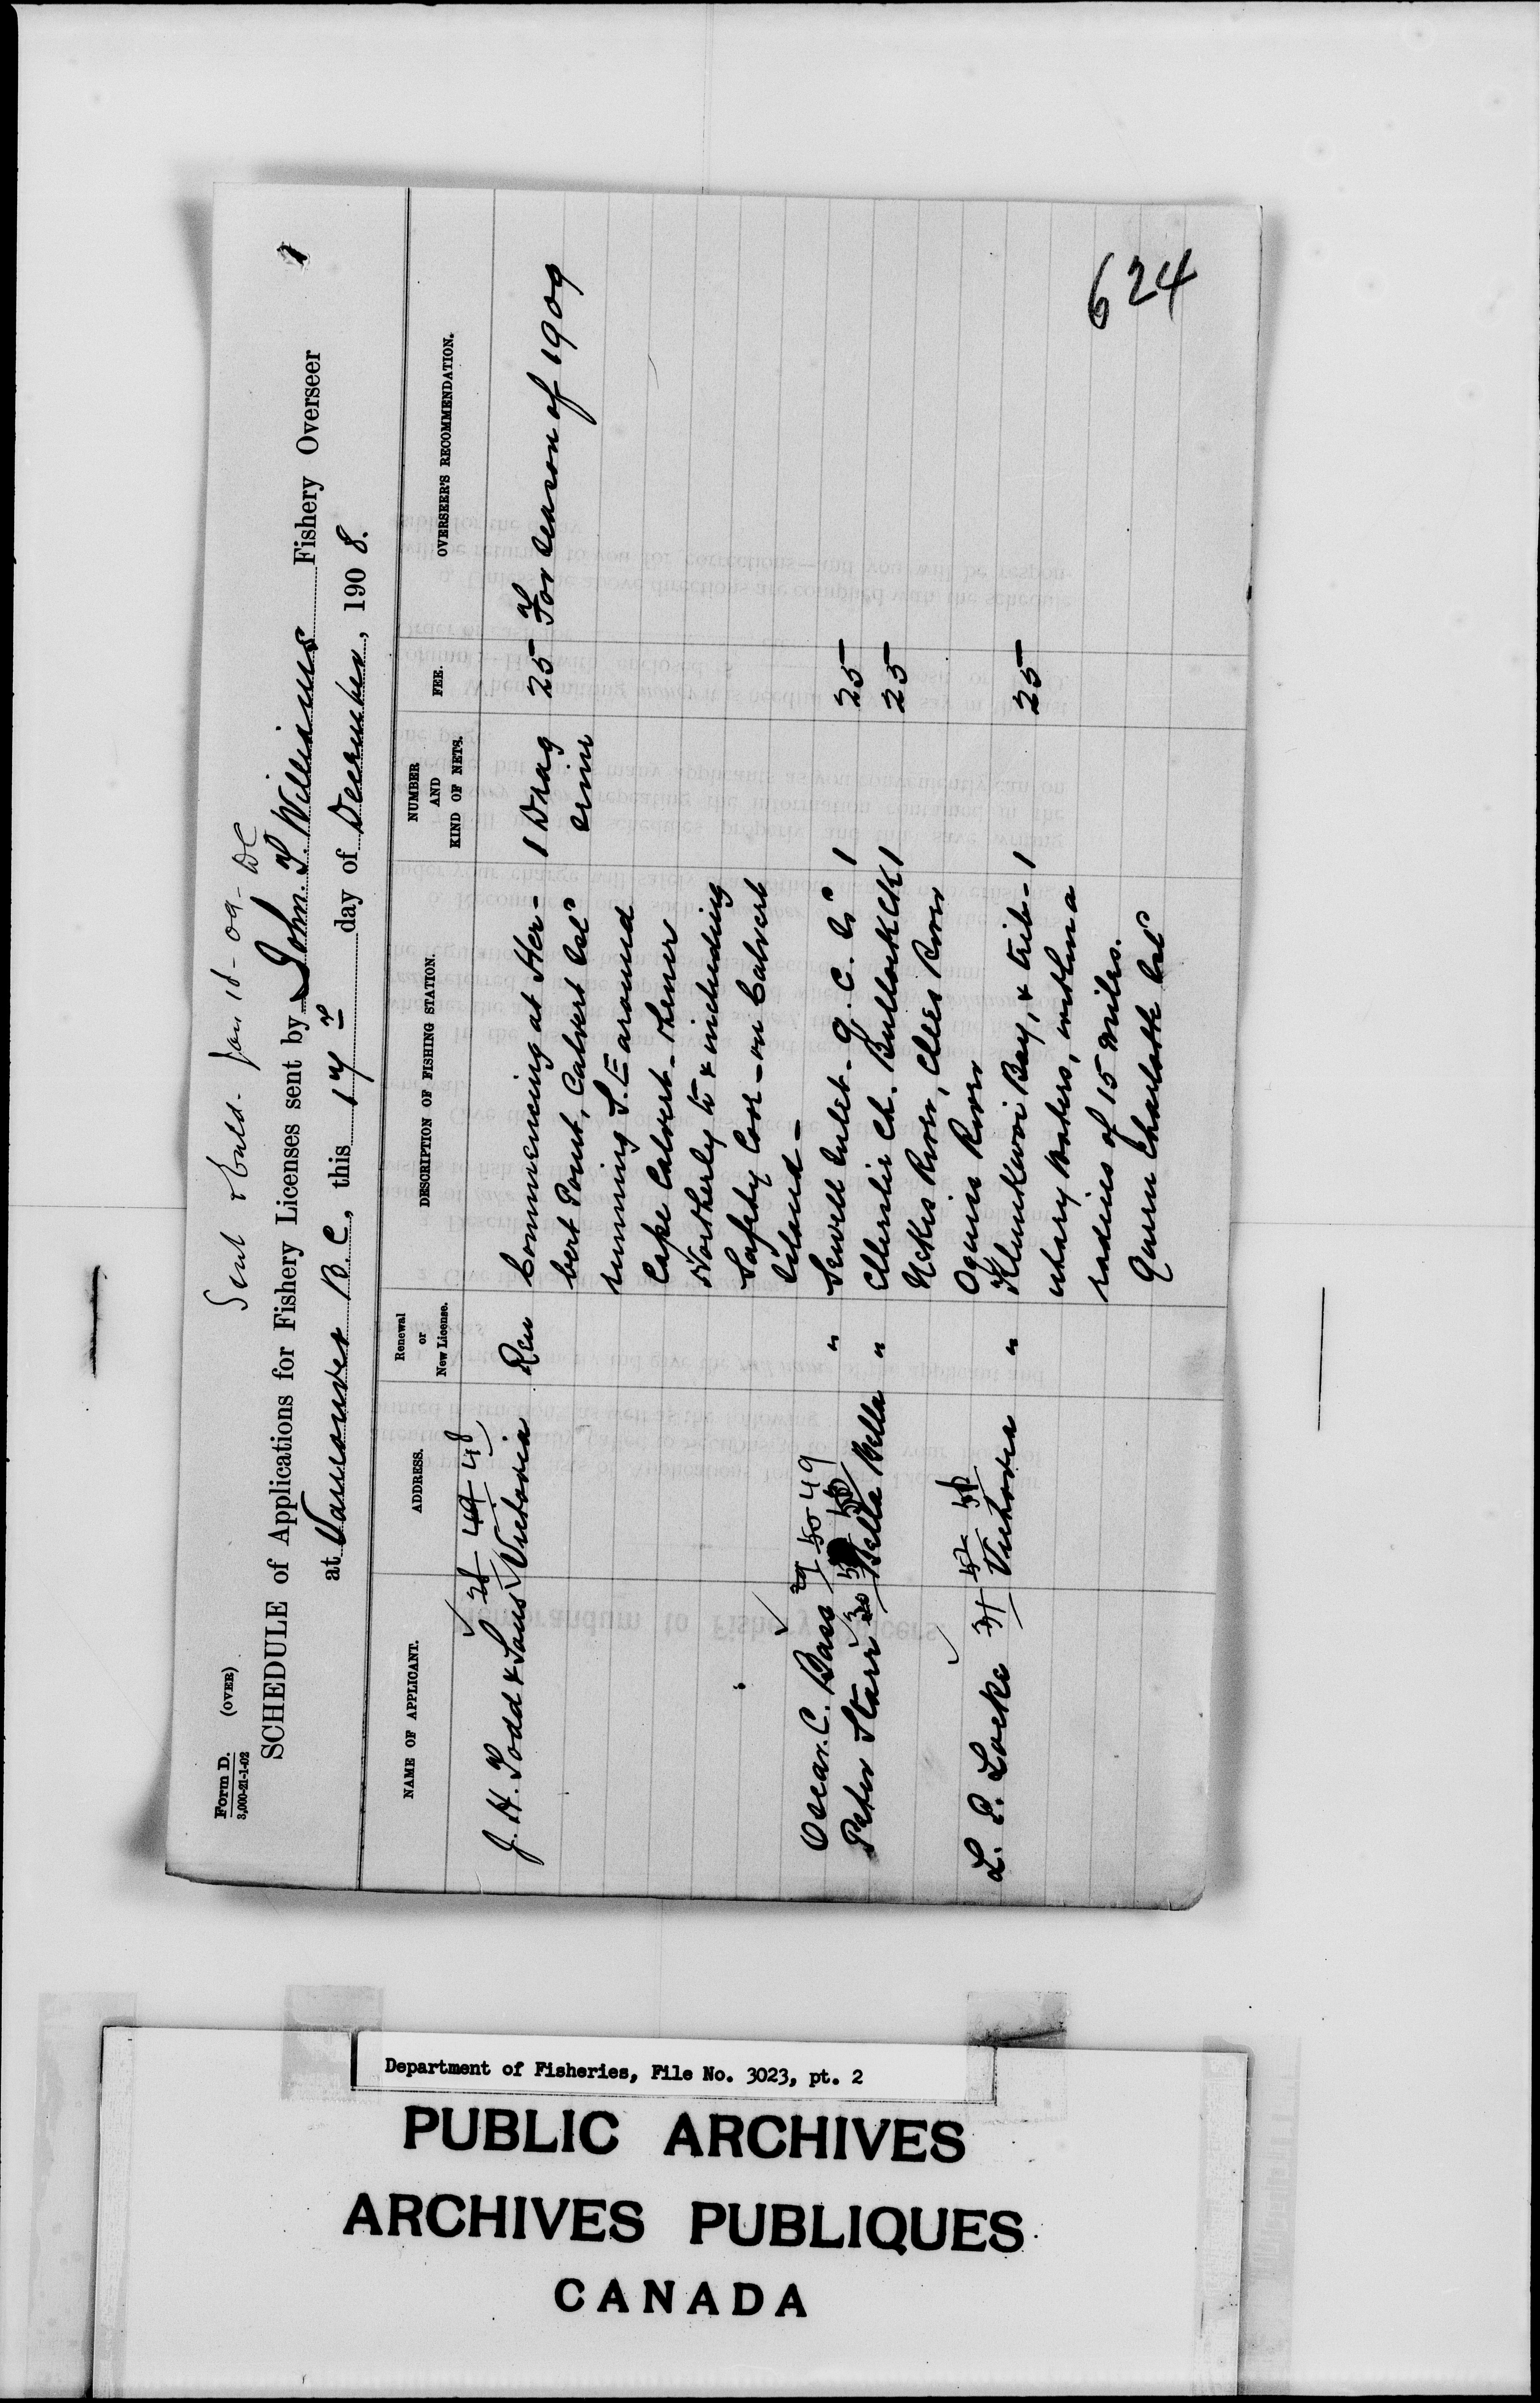 Form D. (OVER)
3,000-21-1-02
Sent Jan 18-09-
1
SCHEDULE of Applications for Fishery Licenses sent by John. T. Williams Fishery Overseer
at Vancouver B.C, this 17th day of December, 1908.
NAME OF APPLICANT. ADDRESS. Renewal or New License. DESCRIPTION OF FISHING STATION. NUMBER AND KIND OF NETS. FEE. OVERSEER'S RECOMMENDATION.
28 49 48
J. H. Todd & Sons Victoria Ren Commencing at Her- 1 Drag 25 For Season of 1909
bert Point, Calvert Isld seine
running S.E around
Cape Calvert - thence
Northerly to & including
Safety Cove - on Calvert
Island -
29 50 49
Oscar. C. Bass " Sewell Inlet - Q. C. Is 1 25
Peter Starr 30 Bella Bella " Ellerslie Ch. Bullock Ck 1 25
Neekis River, Elles River
Oquis River
L. P. Locke 31 Victoria " Klunkwoi Bay, & trib- 1 25
utary waters, within a
radius of 15 miles.
Queen Charlotte Isld
624
Department of Fisheries, File No. 3023, pt. 2
PUBLIC ARCHIVES
ARCHIVES PUBLIQUES
CANADA